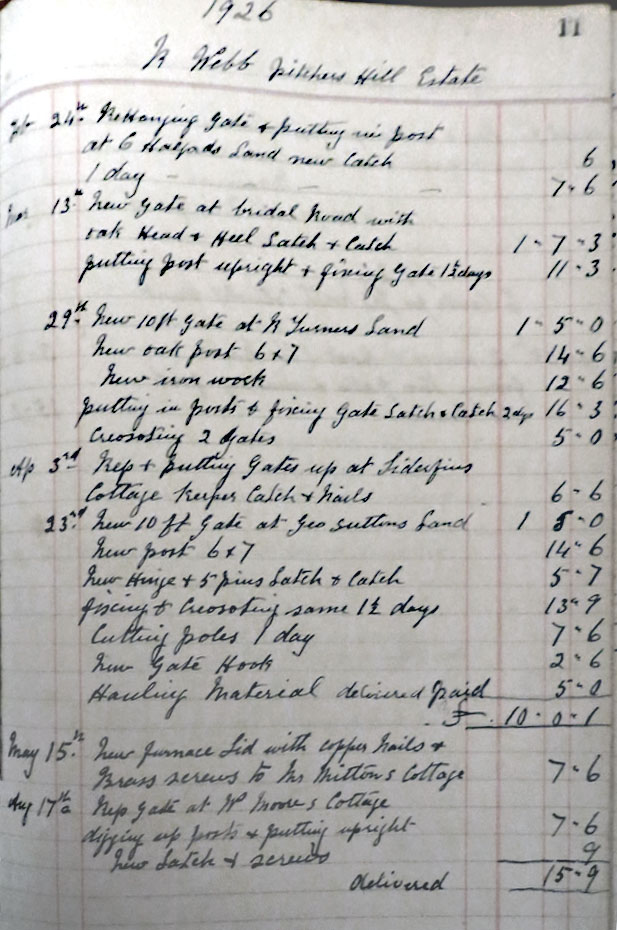 1926
11
R Webb Pitchers Hill Estate
Feb 24th ReHanging Gate & putting in post
at C Land new Catch 6
1 day - - - - 7-6
Mar 13th New Gate at bridal Road with
oak Head & Heel Latch & Catch 1-7-3
putting Post upright & fixing Gate 1½ days 11-3
29th New 10ft Gate at R Turners Land 1-5-0
New oak post 6x7 14-6
New iron work 12-6
putting in posts & fixing Gate Latch & Catch 2 dys 16-3
Creosoting 2 Gates 5-0
Ap 3rd Rep & putting Gates up at
Cottage Keeper Catch & Nails 6-6
23rd New 10 ft Gate at Geo Suttons Land 1 5-0
New post 6x7 14-6
New Hinge & 5 pins Latch & Catch 5-7
fixing & Creosoting same 1½ days 13-9
Cutting poles 1 day 7-6
New Gate Hook 2-6
Hauling Material delivered Paid 5-0
£ 10-0-1
May 15th New furnace Lid with copper Nails &
Brass screws to Mr Mittons Cottage 7-6
Aug 17th Rep Gate at Wm Moore's Cottage
digging up posts & putting upright 7-6
New Latch & screws 9
delivered 15-9